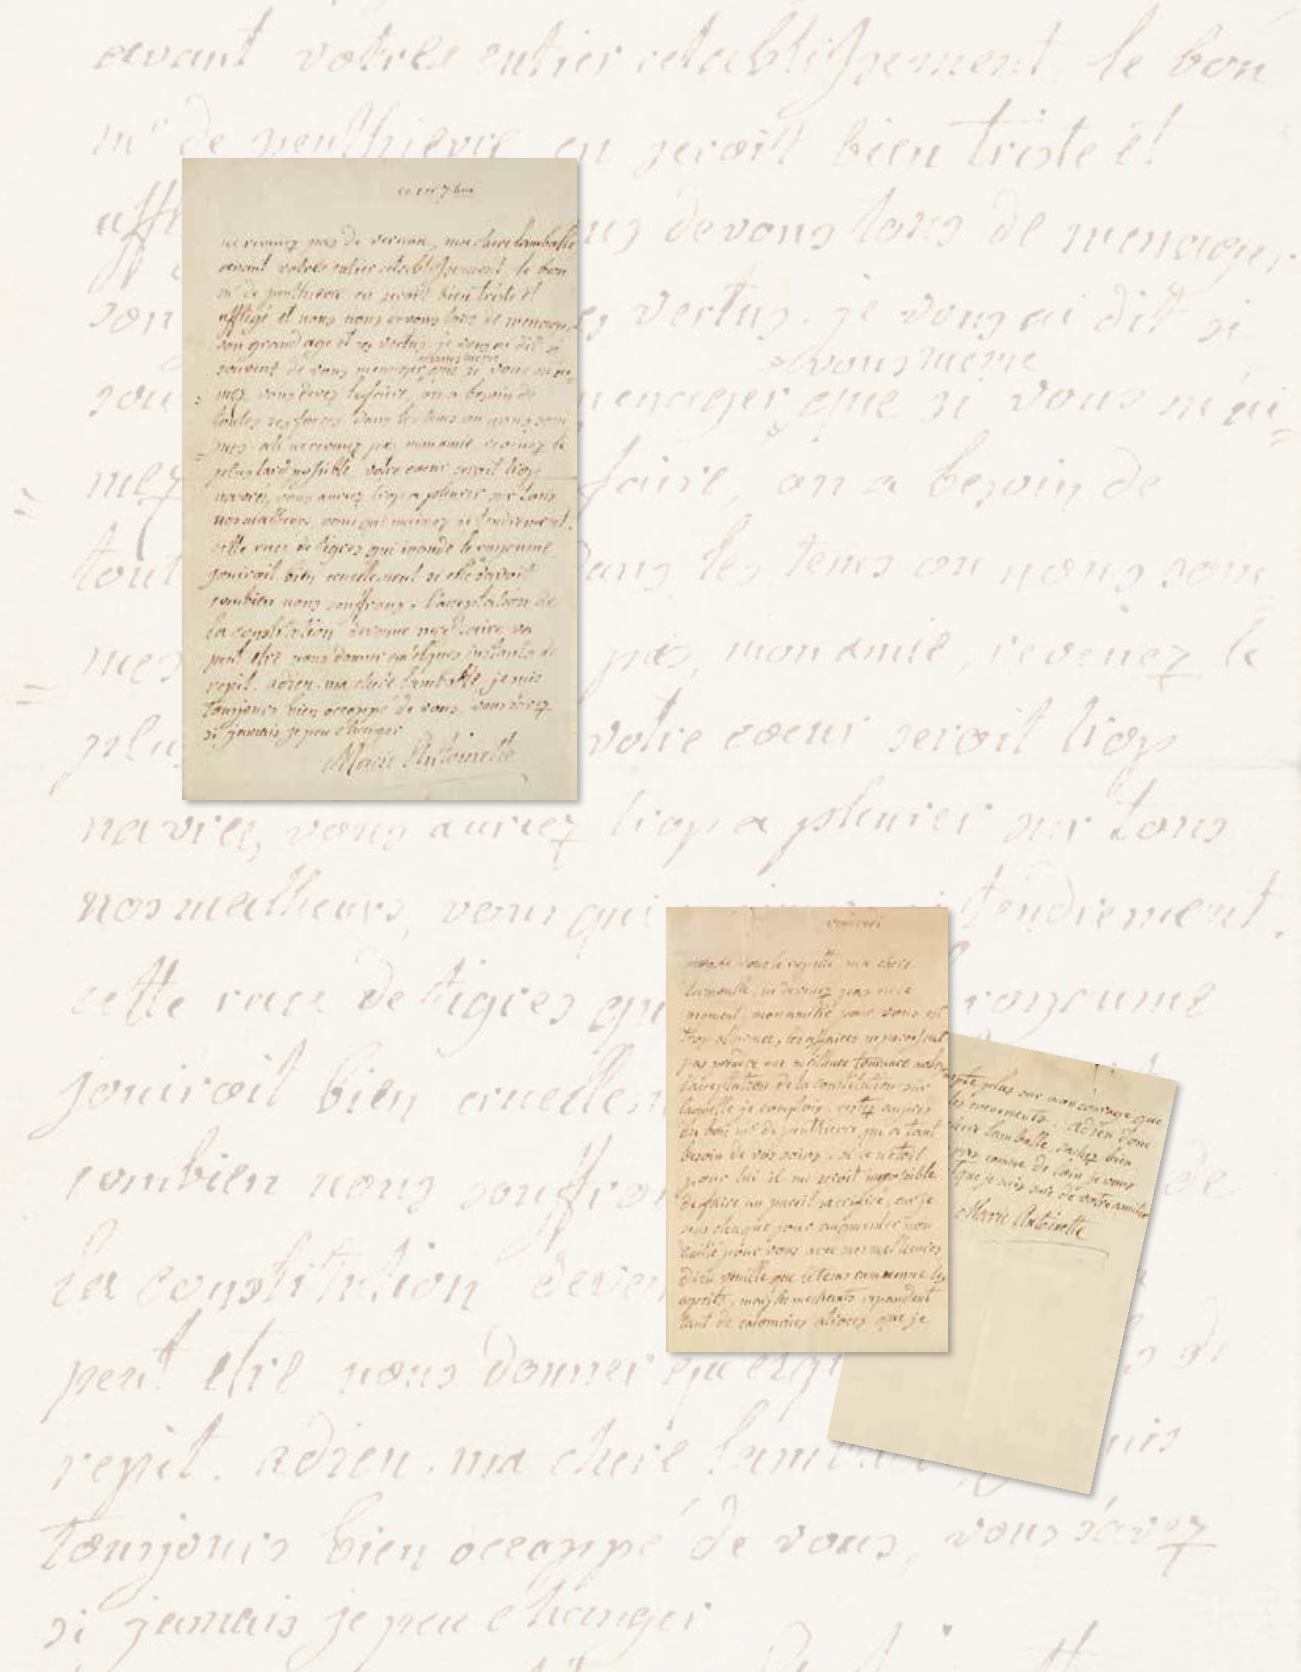 ce 1er 7bre
ne revenez pas de vernon, ma chere lamballe
avant votre entier retablissement le bon
mr de penthievre en seroit bien triste et
affligé et nous nous devons tous de menager
son grand age et ses vertus. je vous ai dit si
souvent de vous menager vous meme que si vous m'ai=
=mez vous devez le faire, on a besoin de
toutes ses forces dans les tems ou nous som=
=mes. ah ne revenez pas, mon amie, revenez le
plus tard possible votre coeur seroit trop
navrée, vous auriez trop a pleurer sur tous
nos malheurs, vous qui m'aimez si tendrement.
cette race de tigres qui inonde le royaume
jouiroit bien cruellement si elle savoit
combien nous souffrons. l'aceptation de
la constitution devenue necessaire va
peut etre nous donner quelques instants de
repit. adieu. ma chere lamballe, je suis
toujours bien occuppé de vous, vous savez
si jamais je peu changer
Marie Antoinette
vous le repette, ma chere
lamballe, ne revenez pas en ce
moment, mon amitié pour vous est
trop allarmée, les affaires ne paroissent
pas prendre une meilleure tournure malgré
l'aceptation de la constitution sur
laquelle je comptois. restez aupres
du bon mr de penthievre qui a tant
besoin de vos soins. si ce n'etoit
pour lui il me seroit impossible
de faire un pareil sacrifice, car je
sens chaque jour augmenter mon
amitié pour vous avec mes malheurs,
dieu veuille que le tems ramenne les
esprits, mais les mechants repandent
tant de calomnies atroces que je
compte plus sur mon courage que
les evenements. adieu donc
chere lamballe, sachez bien
pres comme de loin je vous
que je suis sure de votre amitié
Marie Antoinette
avant votre entier retablissement le bon
mr de penthievre en seroit bien triste et
devons tous de menager
son vertus. je vous ai dit si
vous meme
menager que si vous m'ai=
mez faire, on a besoin de
tout dans les tems ou nous som=
mes pas, mon amie, revenez le
plus votre coeur seroit trop
navrée, vous auriez trop a pleurer sur tous
nos malheurs, vous qui tendrement.
cette race de tigres qui royaume
jouiroit bien cruellem
combien nous souffron de
la constitution deven
peut etre nous donner quelqu s de
repit. adieu. ma chere lamb uis
toujours bien occuppé de vous, vous savez
si jamais je peu changer